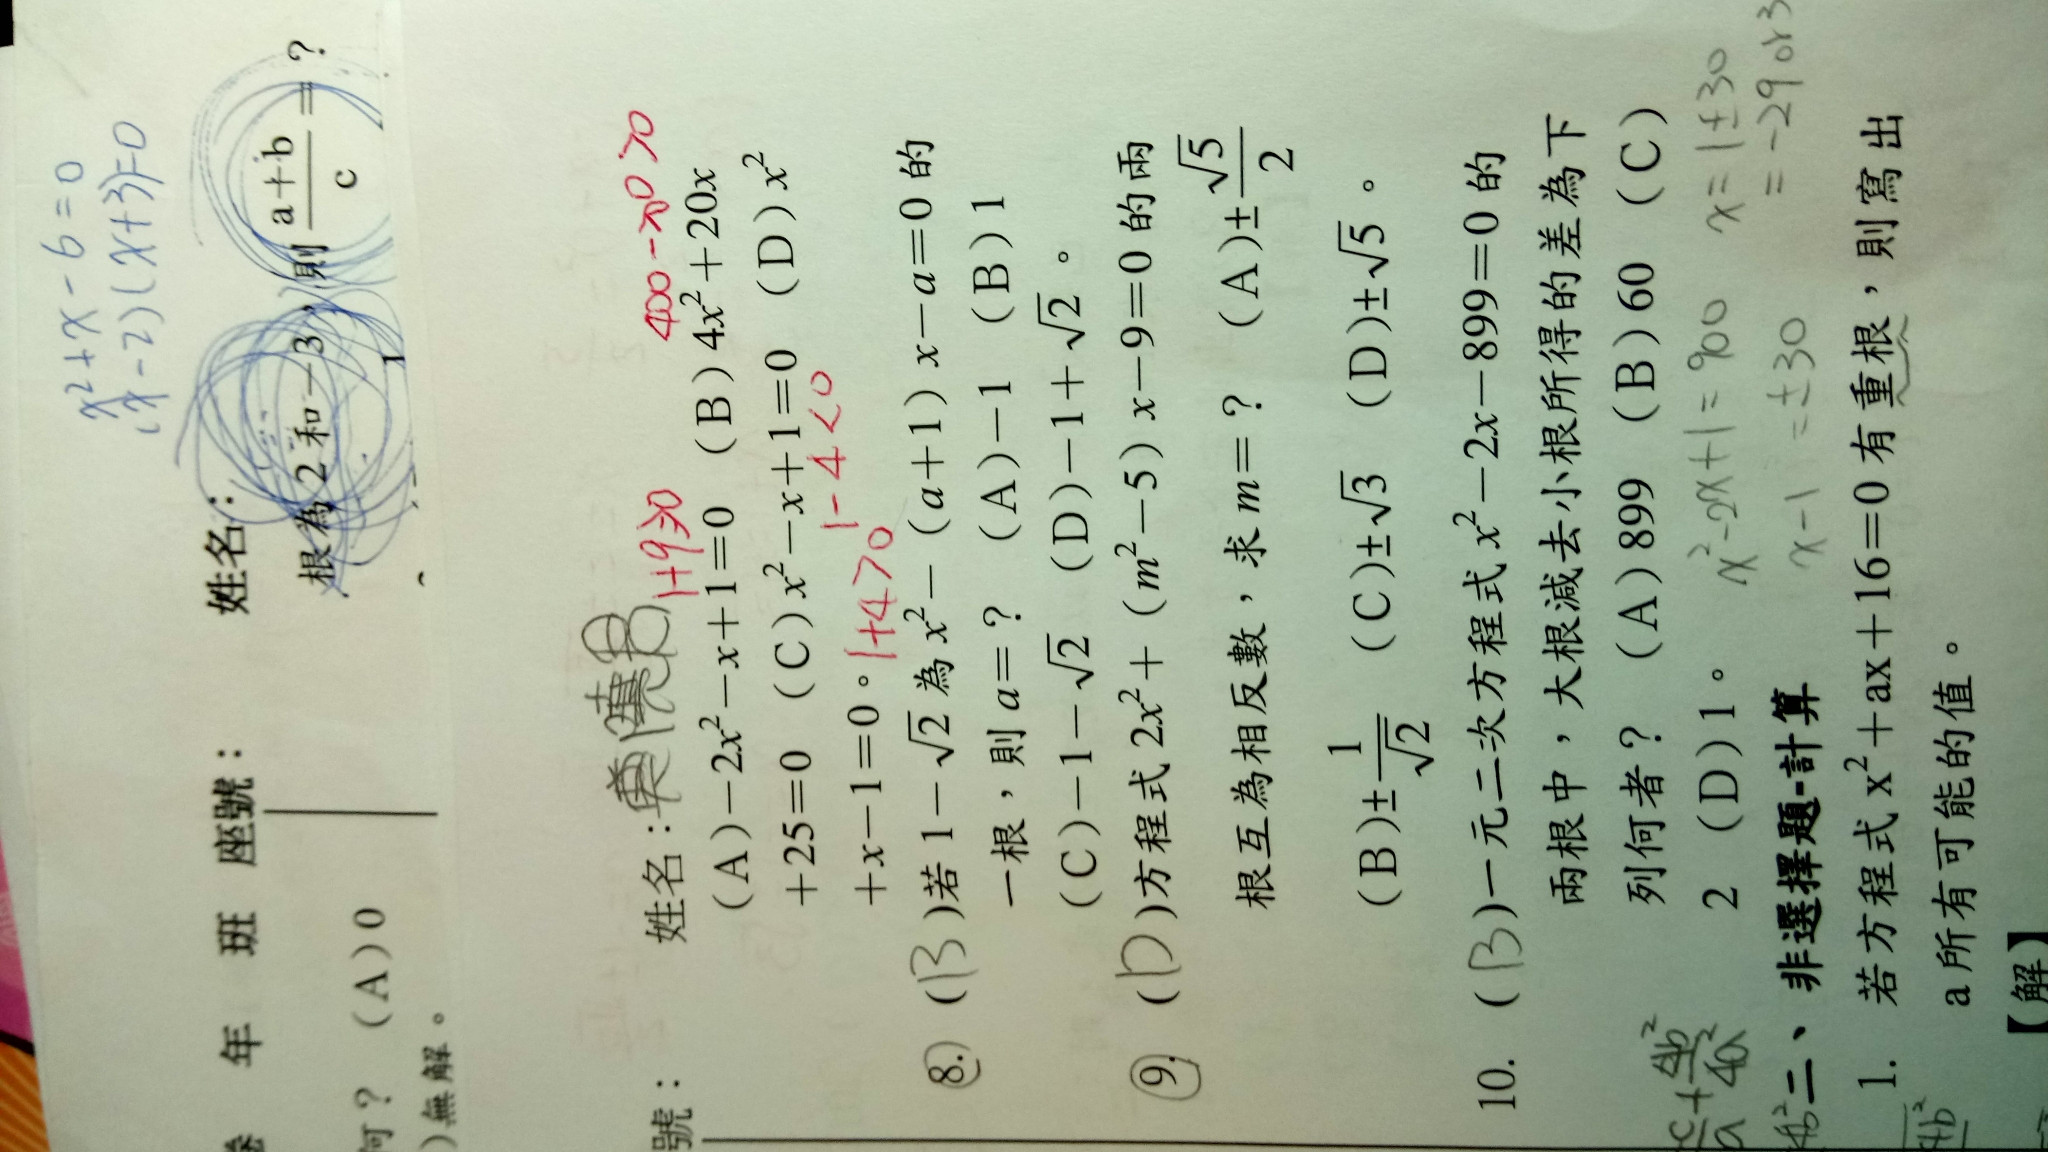 x²+x-6=0
(x-2)(x+3)=0
年 班 座號： 姓名：
根為2和-3，則 (a+b)/c = ？
何？ (A)0
)無解。
號： 姓名：
1+9≥0
400-400≥0
(A)-2x²-x+1=0 (B)4x²+20x
+25=0 (C)x²-x+1=0 (D)x²
1-4<0
+x-1=0。 1+4>0
8. (B)若1-√2為x²-(a+1)x-a=0的
一根，則a=？ (A)-1 (B)1
(C)-1-√2 (D)-1+√2。
9. (D)方程式2x²+(m²-5)x-9=0的兩
根互為相反數，求m=？ (A)±√5/2
(B)±1/√2 (C)±√3 (D)±√5。
10. (B)一元二次方程式x²-2x-899=0的
兩根中，大根減去小根所得的差為下
列何者？ (A)899 (B)60 (C)
2 (D)1。 x²-2x+1=900 x=1±30
x-1=±30 =-29 or 3
二、非選擇題-計算
1. 若方程式x²+ax+16=0有重根，則寫出
a所有可能的值。
【解】